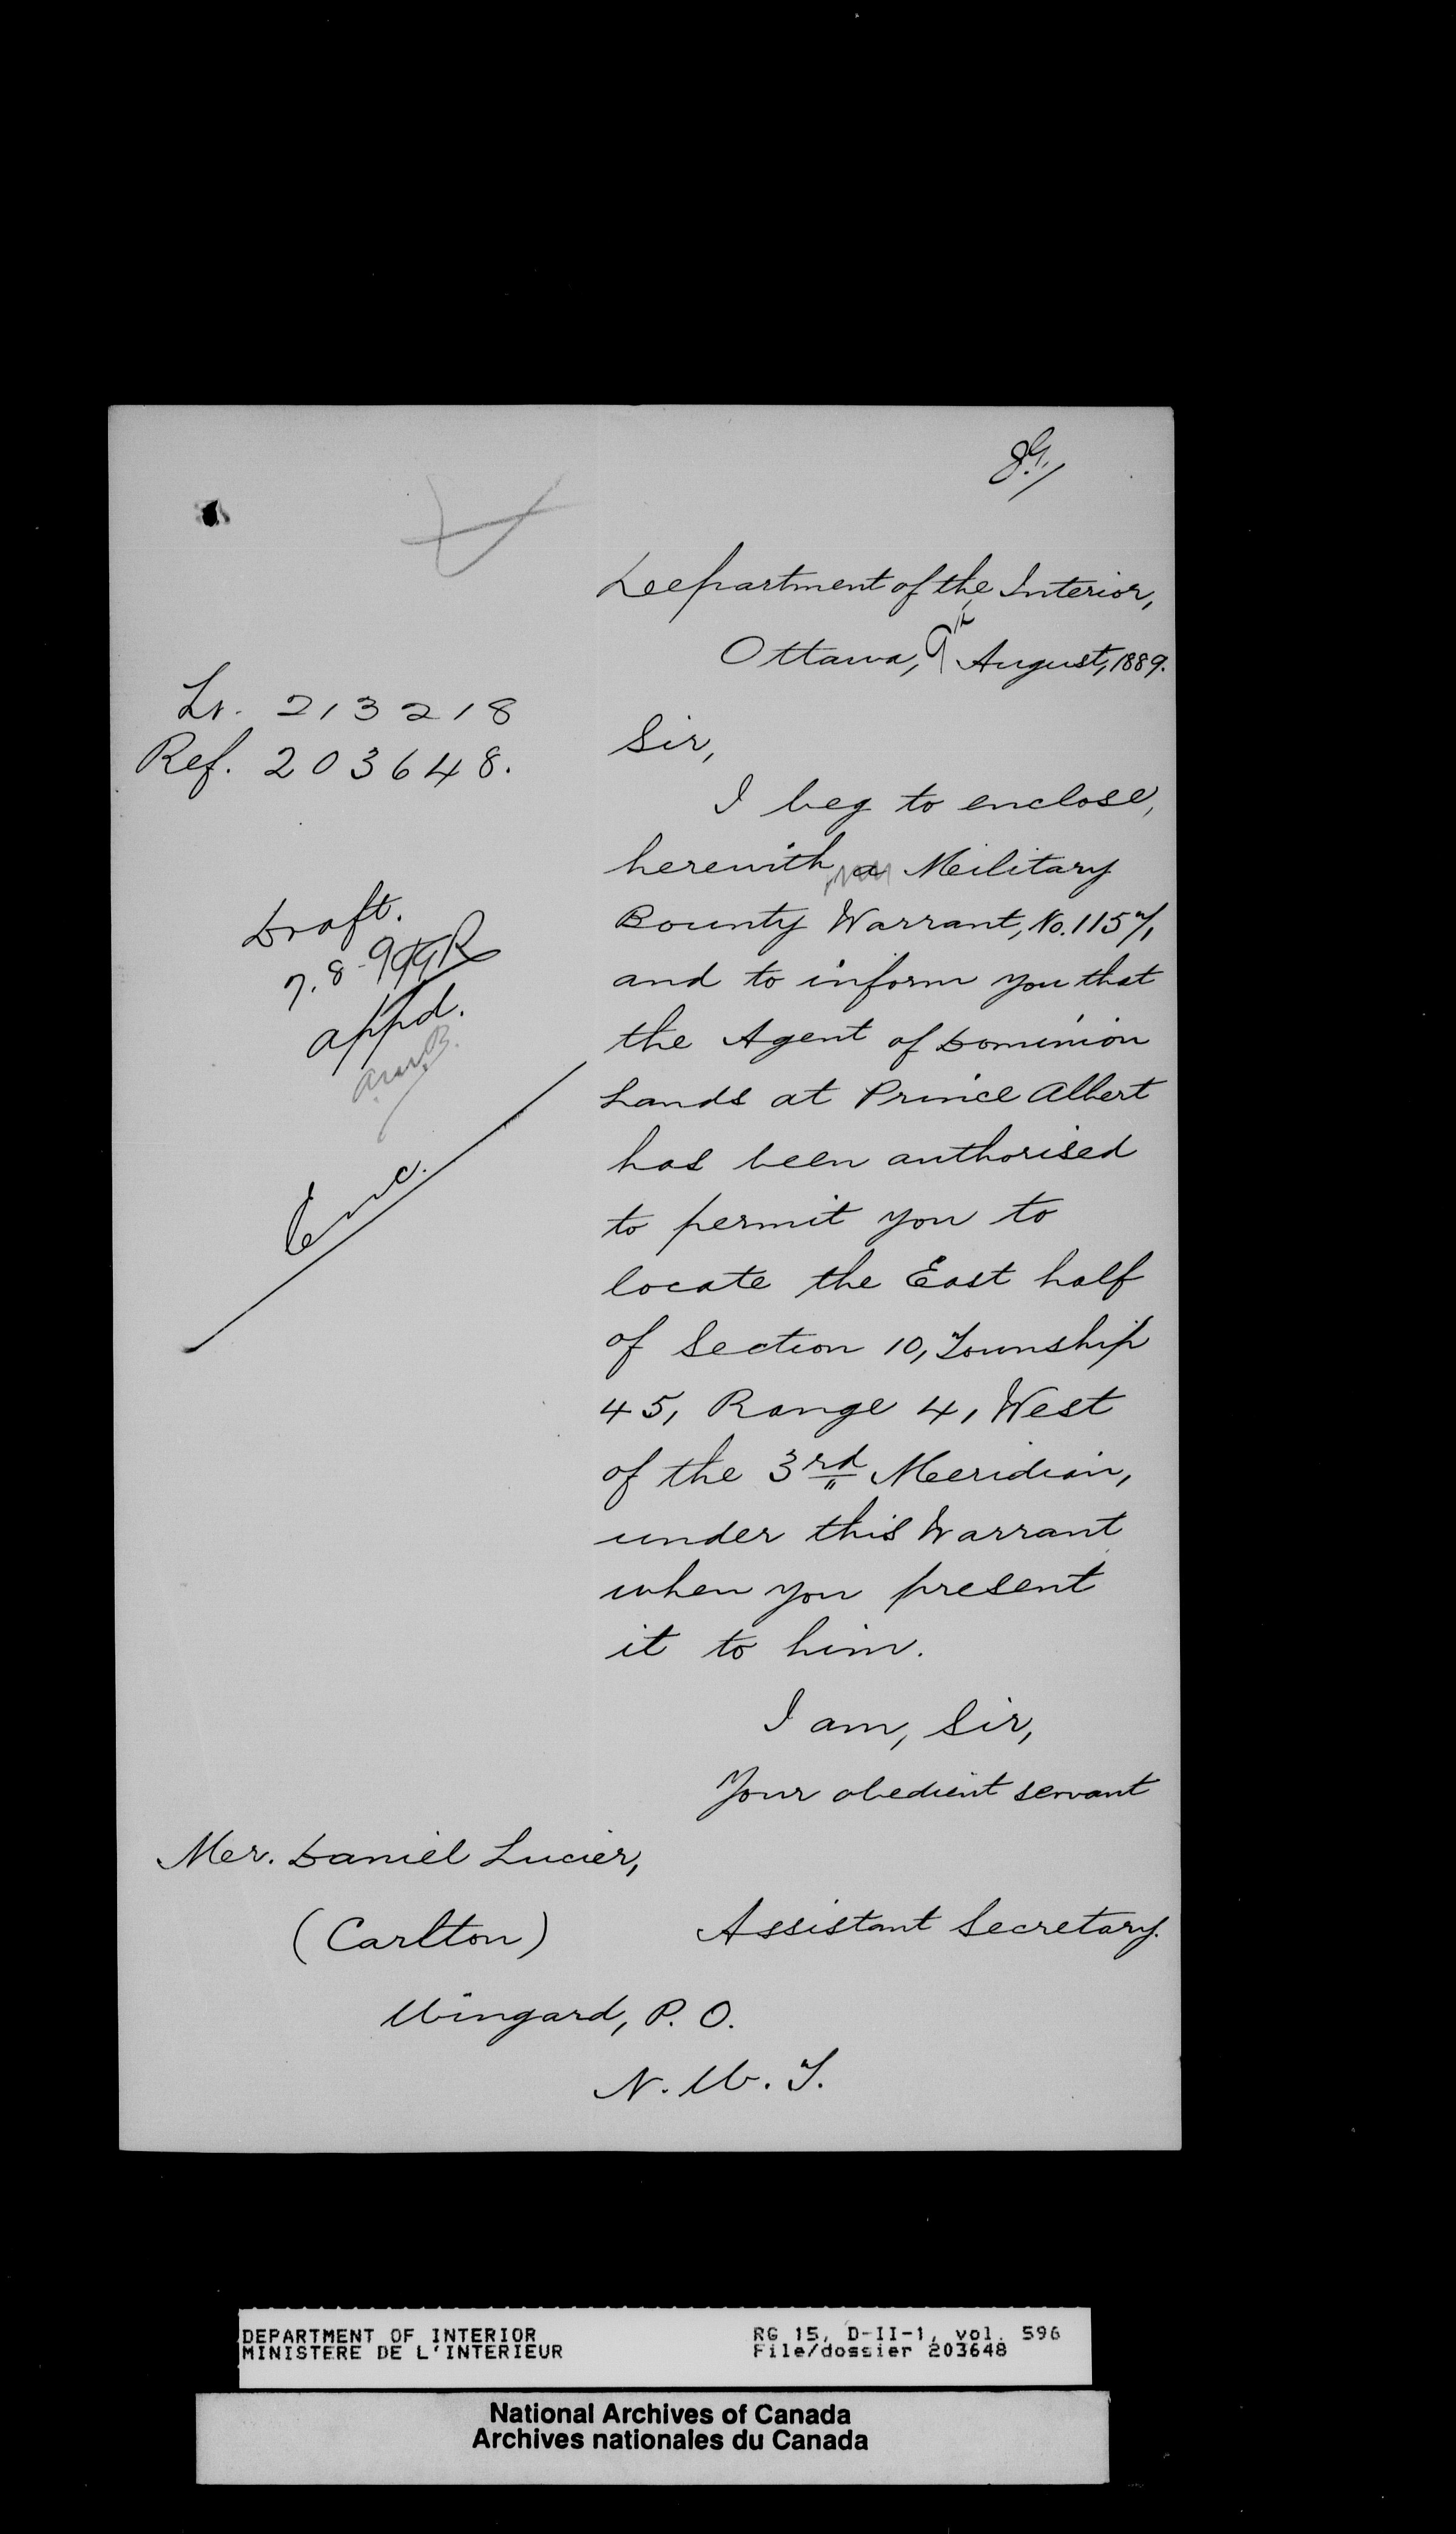 Department of the Interior,
Ottawa, 9th August, 1889.
Lr. 213218
Ref. 203648.
Sir,
I beg to enclose,
herewith a Military
Bounty Warrant, No. 115
and to inform you that
the Agent of Dominion
Lands at Prince Albert
has been authorised
to permit you to
locate the East half
of Section 10, Township
45, Range 4, West
of the 3rd Meridian,
under this Warrant
when you present
it to him.
I am, Sir,
Your obedient servant
Assistant Secretary.
Draft.
7.8.
appd.
Enc.
Mr. Daniel Lucier,
(Carlton)
Wingard, P. O.
N. W. T.
DEPARTMENT OF INTERIOR
MINISTERE DE L'INTERIEUR
RG 15, D-II-1, vol. 596
File/dossier 203648
National Archives of Canada
Archives nationales du Canada